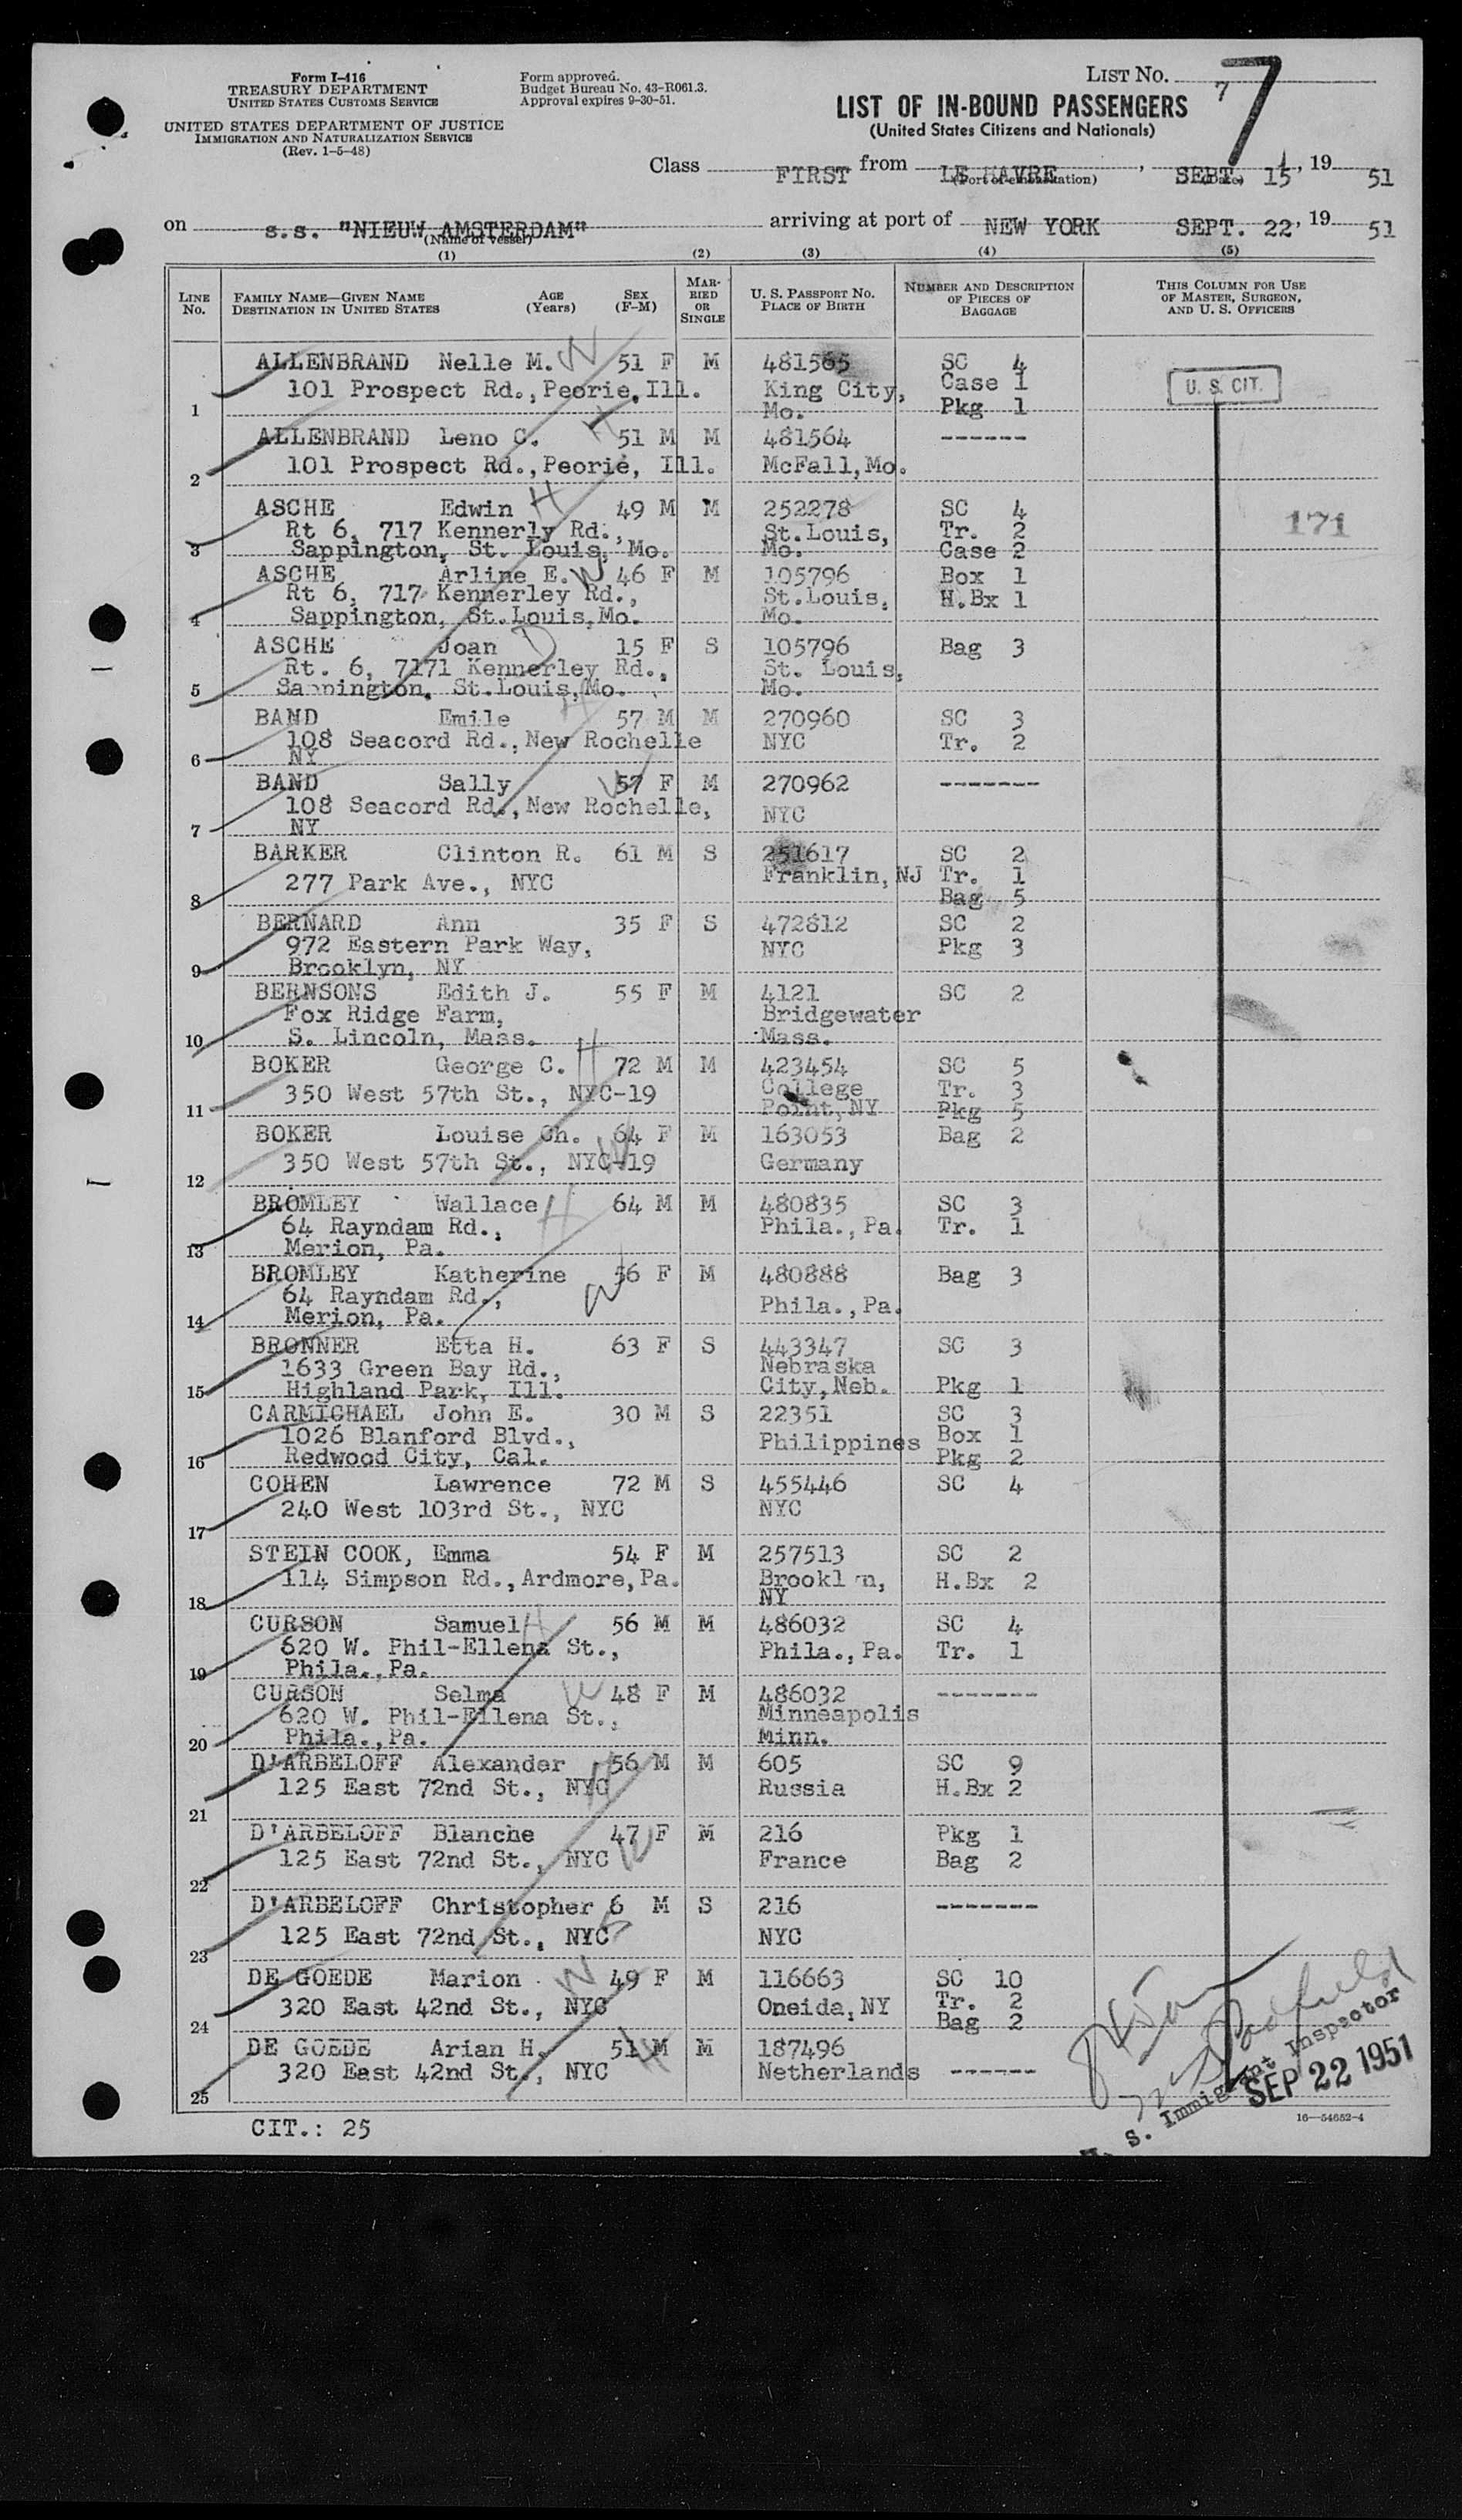 Form I-416
TREASURY DEPARTMENT
UNITED STATES CUSTOMS SERVICE
UNITED STATES DEPARTMENT OF JUSTICE
IMMIGRATION AND NATURALIZATION SERVICE
(Rev. 1-5-48)
Form approved.
Budget Bureau No. 43-R061.3.
Approval expires 9-30-51.
LIST NO. 7
7
LIST OF IN-BOUND PASSENGERS
(United States Citizens and Nationals)
Class FIRST from LE HAVRE, SEPT. 15, 19 51
(Port of embarkation) (Date)
on s.s. "NIEUW AMSTERDAM" arriving at port of NEW YORK SEPT. 22, 19 51
(Name of vessel)
(1) (2) (3) (4) (5)
LINE NO. FAMILY NAME—GIVEN NAME DESTINATION IN UNITED STATES AGE (Years) SEX (F-M) MARRIED OR SINGLE U. S. PASSPORT NO. PLACE OF BIRTH NUMBER AND DESCRIPTION OF PIECES OF BAGGAGE THIS COLUMN FOR USE OF MASTER, SURGEON, AND U. S. OFFICERS
ALLENBRAND Nelle M. W 51 F M 481565 SC 4
101 Prospect Rd., Peorie, Ill. King City, Case 1 U. S. CIT.
1 Mo. Pkg 1
ALLENBRAND Leno C. H 51 M M 481564 ------
101 Prospect Rd., Peorie, Ill. McFall, Mo.
2
ASCHE Edwin H 49 M M 252278 SC 4
Rt 6, 717 Kennerly Rd., St. Louis, Tr. 2 171
3 Sappington, St. Louis, Mo. Mo. Case 2
ASCHE Arline E. W 46 F M 105796 Box 1
Rt 6, 717 Kennerley Rd., St.Louis, H.Bx 1
4 Sappington, St.Louis, Mo. Mo.
ASCHE Joan D 15 F S 105796 Bag 3
Rt. 6, 7171 Kennerley Rd., St. Louis,
5 Sappington, St.Louis, Mo. Mo.
BAND Emile H 57 M M 270960 SC 3
108 Seacord Rd., New Rochelle NYC Tr. 2
6 NY
BAND Sally W 57 F M 270962 -------
108 Seacord Rd., New Rochelle, NYC
7 NY
BARKER Clinton R. 61 M S 251617 SC 2
277 Park Ave., NYC Franklin, NJ Tr. 1
8 Bag 5
BERNARD Ann 35 F S 472812 SC 2
972 Eastern Park Way, NYC Pkg 3
9 Brooklyn, NY
BERNSONS Edith J. 55 F M 4121 SC 2
Fox Ridge Farm, Bridgewater
10 S. Lincoln, Mass. Mass.
BOKER George C. H 72 M M 423454 SC 5
350 West 57th St., NYC-19 College Tr. 3
11 Point, NY Pkg 5
BOKER Louise Ch. 64 F M 163053 Bag 2
350 West 57th St., NYC-19 W Germany
12
BROMLEY Wallace H 64 M M 480835 SC 3
64 Rayndam Rd., Phila., Pa. Tr. 1
13 Merion, Pa.
BROMLEY Katherine W 56 F M 480888 Bag 3
64 Rayndam Rd., Phila., Pa.
14 Merion, Pa.
BRONNER Etta H. 63 F S 443347 SC 3
1633 Green Bay Rd., Nebraska
15 Highland Park, Ill. City, Neb. Pkg 1
CARMICHAEL John E. 30 M S 22351 SC 3
1026 Blanford Blvd., Philippines Box 1
16 Redwood City, Cal. Pkg 2
COHEN Lawrence 72 M S 455446 SC 4
240 West 103rd St., NYC NYC
17
STEIN COOK, Emma 54 F M 257513 SC 2
114 Simpson Rd., Ardmore, Pa. Brookl n, H.Bx 2
18 NY
CURSON Samuel H 56 M M 486032 SC 4
620 W. Phil-Ellena St., Phila., Pa. Tr. 1
19 Phila., Pa.
CURSON Selma W 48 F M 486032 -------
620 W. Phil-Ellena St., Minneapolis
20 Phila., Pa. Minn.
D'ARBELOFF Alexander 56 M M 605 SC 9
125 East 72nd St., NYC H Russia H.Bx 2
21
D'ARBELOFF Blanche 47 F M 216 Pkg 1
125 East 72nd St., NYC W France Bag 2
22
D'ARBELOFF Christopher 6 M S 216 -------
125 East 72nd St., NYC S NYC
23
DE GOEDE Marion W 49 F M 116663 SC 10
320 East 42nd St., NYC Oneida, NY Tr. 2
24 Bag 2
DE GOEDE Arian H. 51 M M 187496
320 East 42nd St., NYC H Netherlands ------
25
U. S. Immigrant Inspector
SEP 22 1951
CIT.: 25
16—54652-4